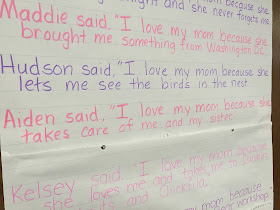 night and she never forgets me
Maddie said, "I love my mom because she
brought me something from Washington DC.
Hudson said, "I love my mom because she
lets me see the birds in the nest.
Aiden said, "I love my mom because she
takes care of me and my sister.
Kelsey said, "I love my mom because
she loves me and takes me to
and Chick fil a.
my mom because
workshop